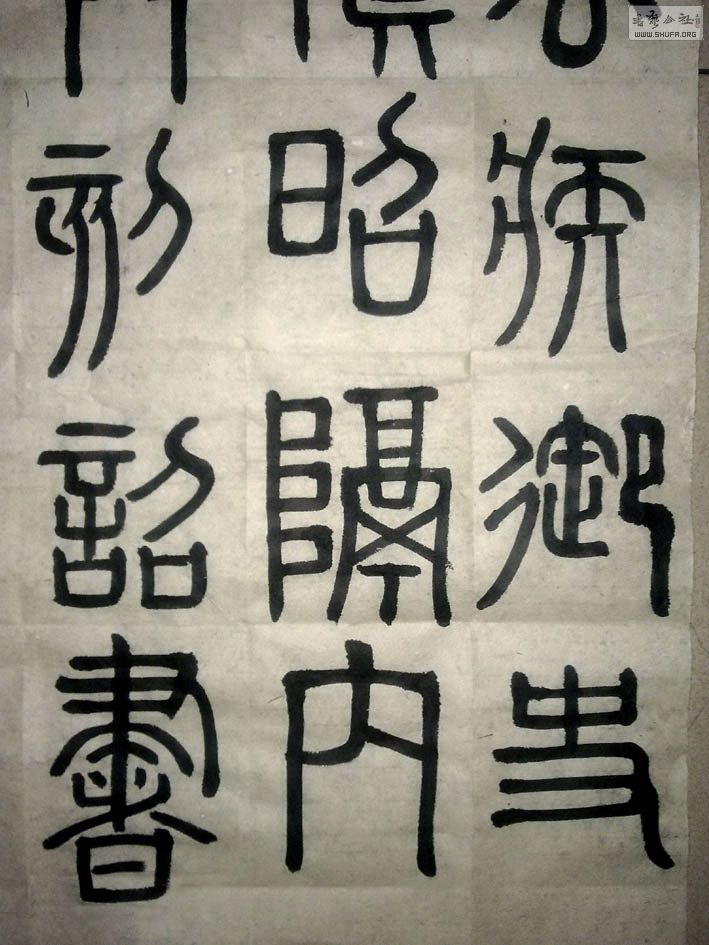 疾御史
昭隔内
刻詔書
書藝公社
WWW.SHUFA.ORG